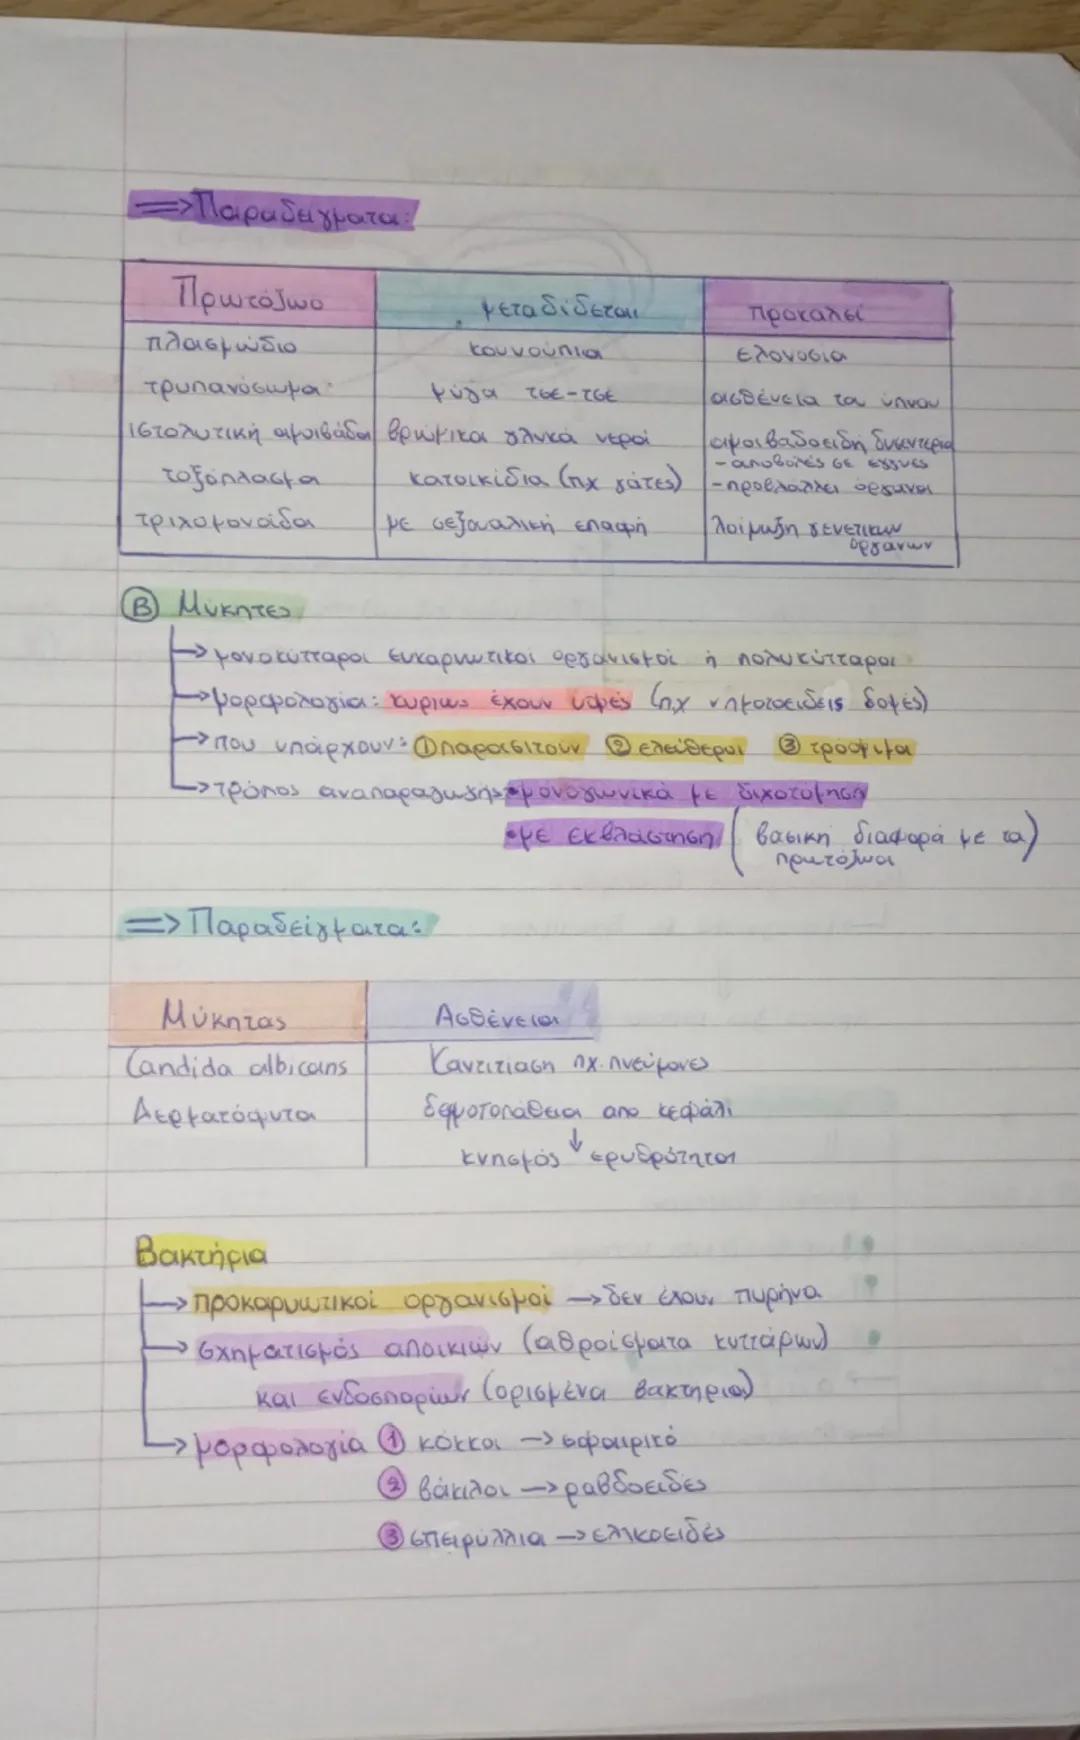 => Παραδείγματα:
Πρωτόζωο μεταδίδεται προκαλεί
πλασμώδιο κουνούπια ελονοσία
τρυπανόσωμα μύγα τσε-τσε ασθένεια του ύπνου
ιστολυτική αμοιβάδα βρώμικα γλυκά νερά αμοιβαδοειδή δυσεντερία
τοξόπλασμα κατοικίδια (πχ γάτες) -αποβολές σε έγγυες
-προβλάλλει όργανα
τριχομονάδα με σεξουαλική επαφή λοίμωξη γενετικών
οργάνων
Β Μύκητες
→ μονοκύτταροι ευκαρυωτικοί οργανισμοί ή πολυκύτταροι
→ μορφολογία: κυρίως έχουν υφές (πχ νηματοειδείς δομές)
→ που υπάρχουν: ① παρασιτούν ② ελεύθεροι ③ τρόφιμα
→ τρόπος αναπαραγωγής •μονογωνικά με διχοτόμηση
•με εκβλάστηση (βασική διαφορά με τα
πρωτόζωα)
=> Παραδείγματα:
Μύκητας Ασθένεια
Candida albicans Καντιτίαση πχ. πνεύμονες
Δερματόφυτα δερματοπάθεια απο κεφάλι
κνησμός ↓ ερυθρότητα
Βακτήρια
→ προκαρυωτικοί οργανισμοί → δεν έχουν πυρήνα
→ σχηματισμός αποικιών (αθροίσματα κυττάρων)
και ενδοσπορίων (ορισμένα βακτηρια)
→ μορφολογία ① κόκκοι → σφαιρικό
② βάκιλοι → ραβδοειδές
③ σπειρύλλια → ελικοειδές